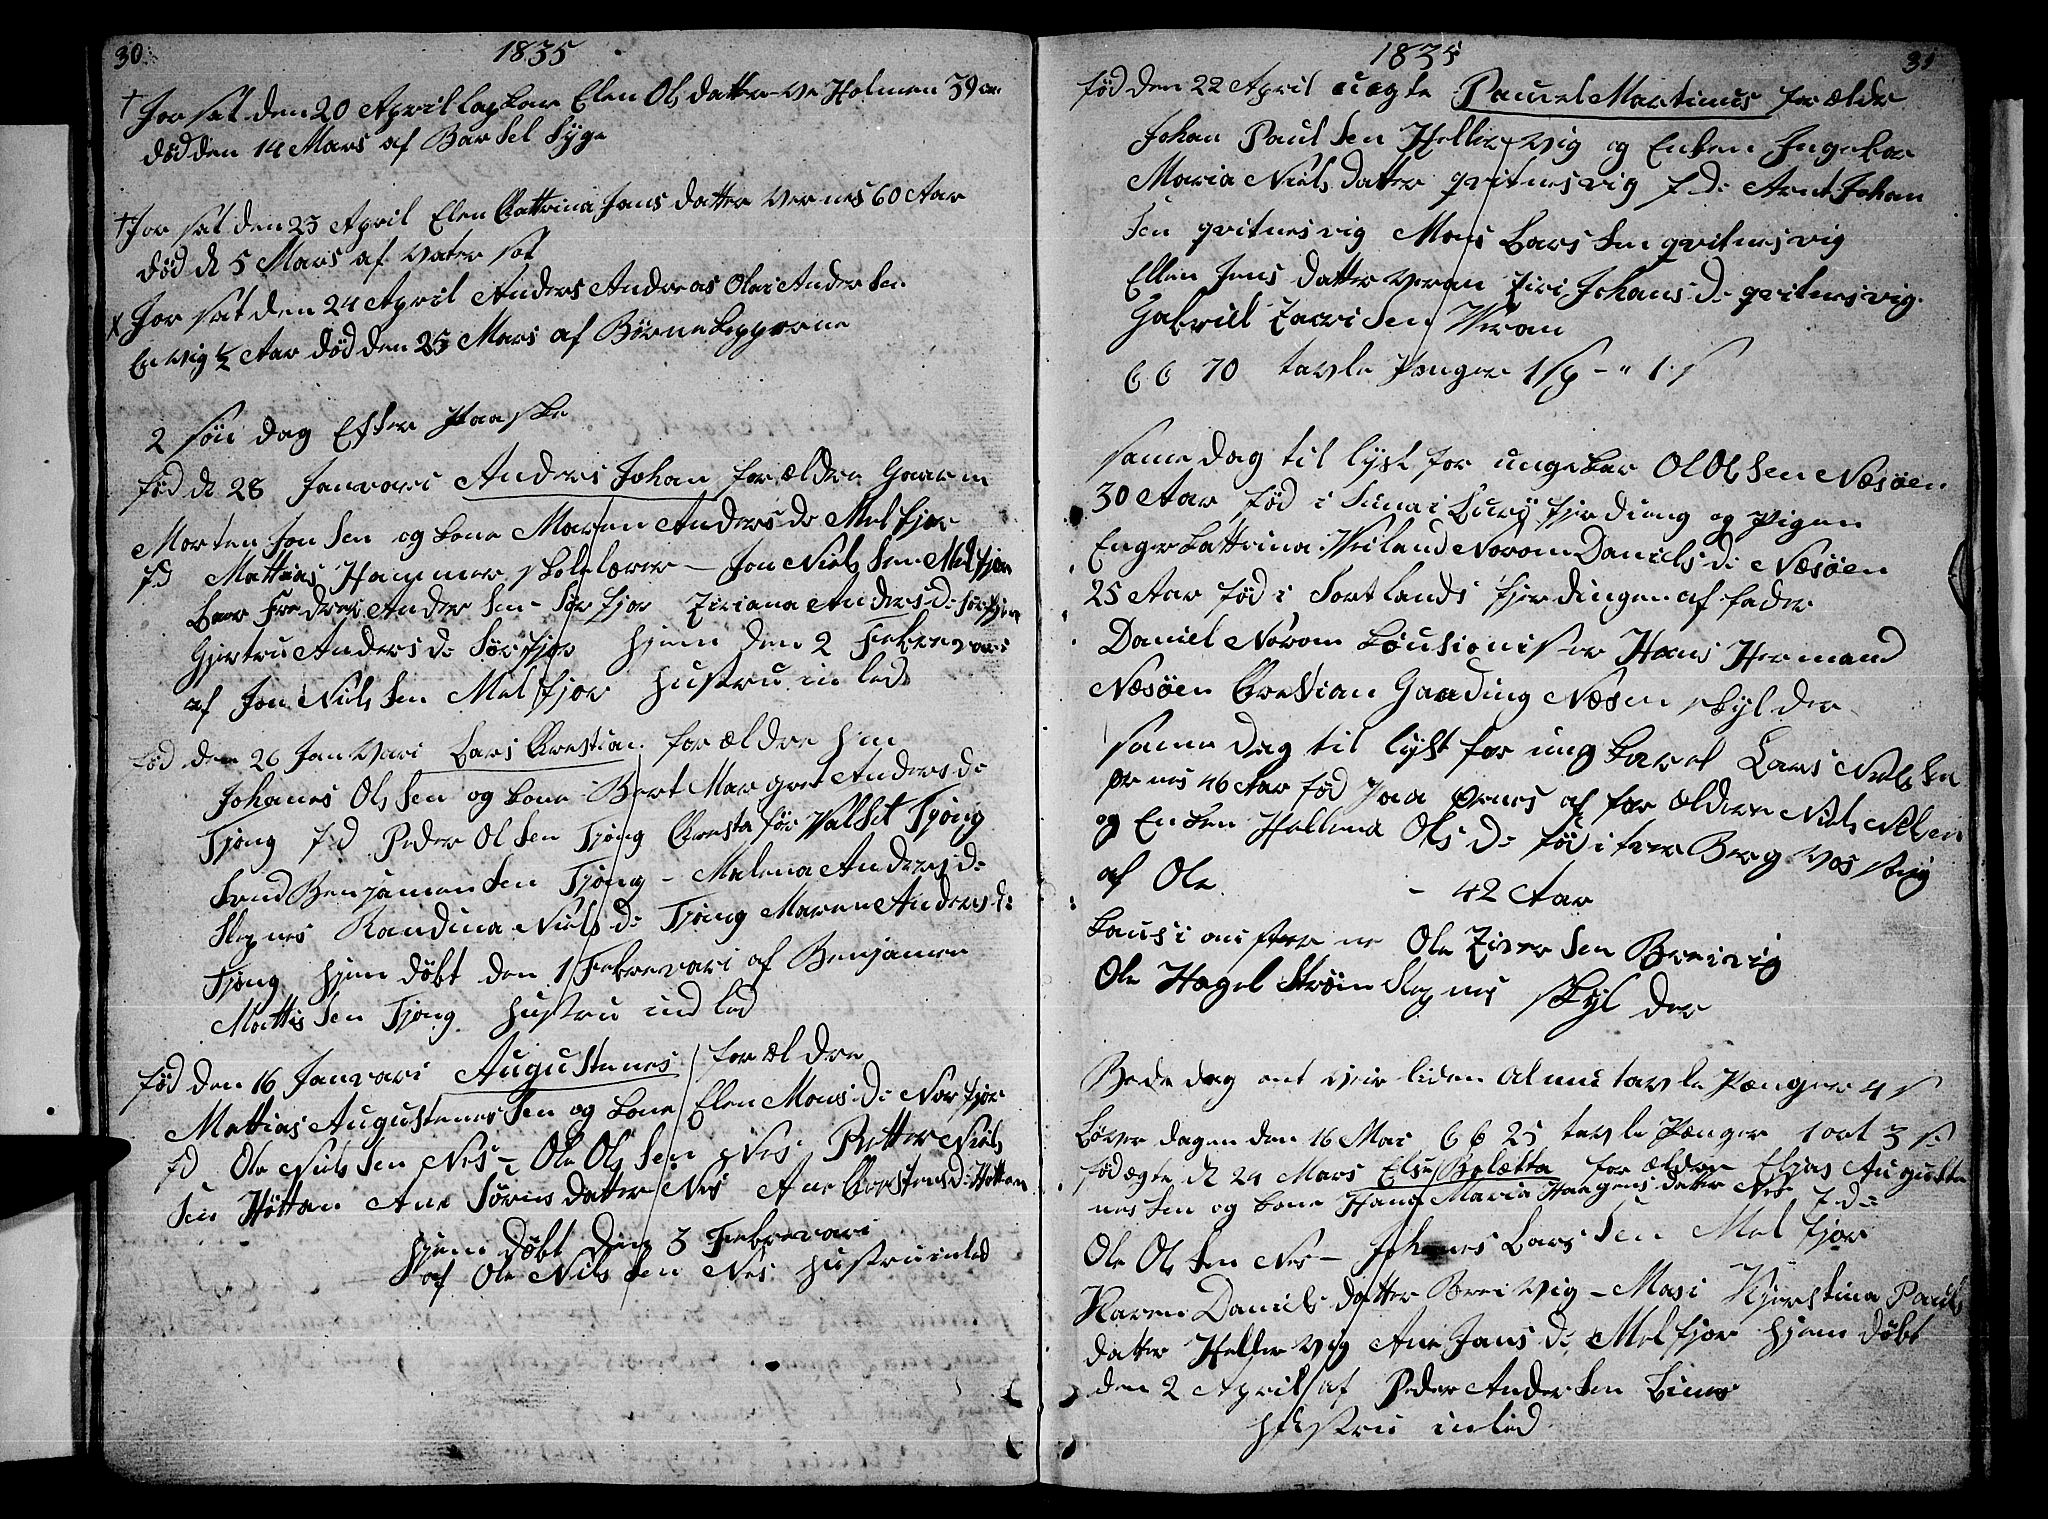 30.
1835
† Jor sat den 20 April lapkar Elen Ols datter ve Holmen 39 aar
død den 14 Mars af Barsel Syge
† Jor sat den 23 April Elen Cattrina Jans datter Vernes 60 Aar
død d 5 Mars af Vater sot
x Jor sat den 24 April Anders Andreas Olai Andersen
En vig ½ Aar død den 25 Mars af Børne kopperne
2 søn dag Efter Paaske
fød d 28 Janvari Anders Johan forældre Gaarm
Morten Jonsen og kone Maren Anders d: Melfjor
fd Mattias Hammer skolelærer - Jon Nielsen Melfjor
Lars Fredrei Andersen - Sørfjor Ziriana Anders d: Sørfjor
Gjertru Anders d: Sørfjor hjem den 2 Febrevari
af Jon Nielsen Melfjor hustru in led
fød den 26 Janvari Lars Crestian forældre hm
Johanes Olsen og kone Bert Margret Anders d:
Tjong fd Peder Olsen Tjong Cresta for Valset Tjong
Send Benjamensen Tjong - Malena Anders d:
Slepnes Randina Niels d: Tjong Maren Anders d:
Tjong hjem døbt den 1 Febrevari af Benjamen
Mattissen Tjong hustru ind led
fød den 16 Janvari Augustenes forældre
Mattias Augustenessen og kone Elen Mons d: Norfjor
fd Ole Nielsen Nes - Ole Olsen Nes Petter Niels
sen Høttan Ane Sørens datter Nes Ane Crestens d: Høttan
hjem døbt den 3 Febrevari
af Ole Nilsen Nes hustru inled
1835
31
fød den 22 April uegte Pauel Martinus forældre
Johan Paulsen Hellervig og Enken Ingebor
Maria Niels datter qvitnesvig fd: Arnt Johan
sen qvitnesvig Mons Larssen qvitnesvig
Ellen Jens datter Veran Ziri Johans d: qvitnesvig
Gabriel Zacrisen Veran
C C 70 tavle Penger 1 sp - " 1 s
same dag til lyst for ungekar Ol Olsen Næsøen
30 Aar fød i Luröj fjerdiung og Pigen
Enger Cattrina Veiland Norom Daniels d: Næsøen
25 Aar fød i Sortlands fjerdingen af fader
Daniel Norom kousionister Hans Hermand
Næsøen Crestian Gaading Næsen skylder
same dag til lyst for ung karel Lars Nielsen
ørnes 46 Aar fød Paa ørnes af forældre Niels Nilsen
og Enken Hellena Ols d: fød i Berg Vos
af Ole - 42 Aar
kausionisterne Ole Ziversen Breivig
Ole Hagel Strøm Slepnes skylder
Bede dag ont veir liden almu tavle Penger 4 s
Løver dagen den 16 Mai C C 25 tavle Penger 1 ort 3 s:
fød ægte d 24 Mars Else Boletta forældre Elias Auguste
nessen og kone Hana Maria Haagens datter Nes fd:
Ole Olsen Nes - Johanes Larssen Melfjor
Karen Daniels datter Breivig - Masi Kjerstina Pauls
datter Hellervig Ane Jans d: Melfjor hjem døbt
den 2 April af Peder Andersen
hustru inled